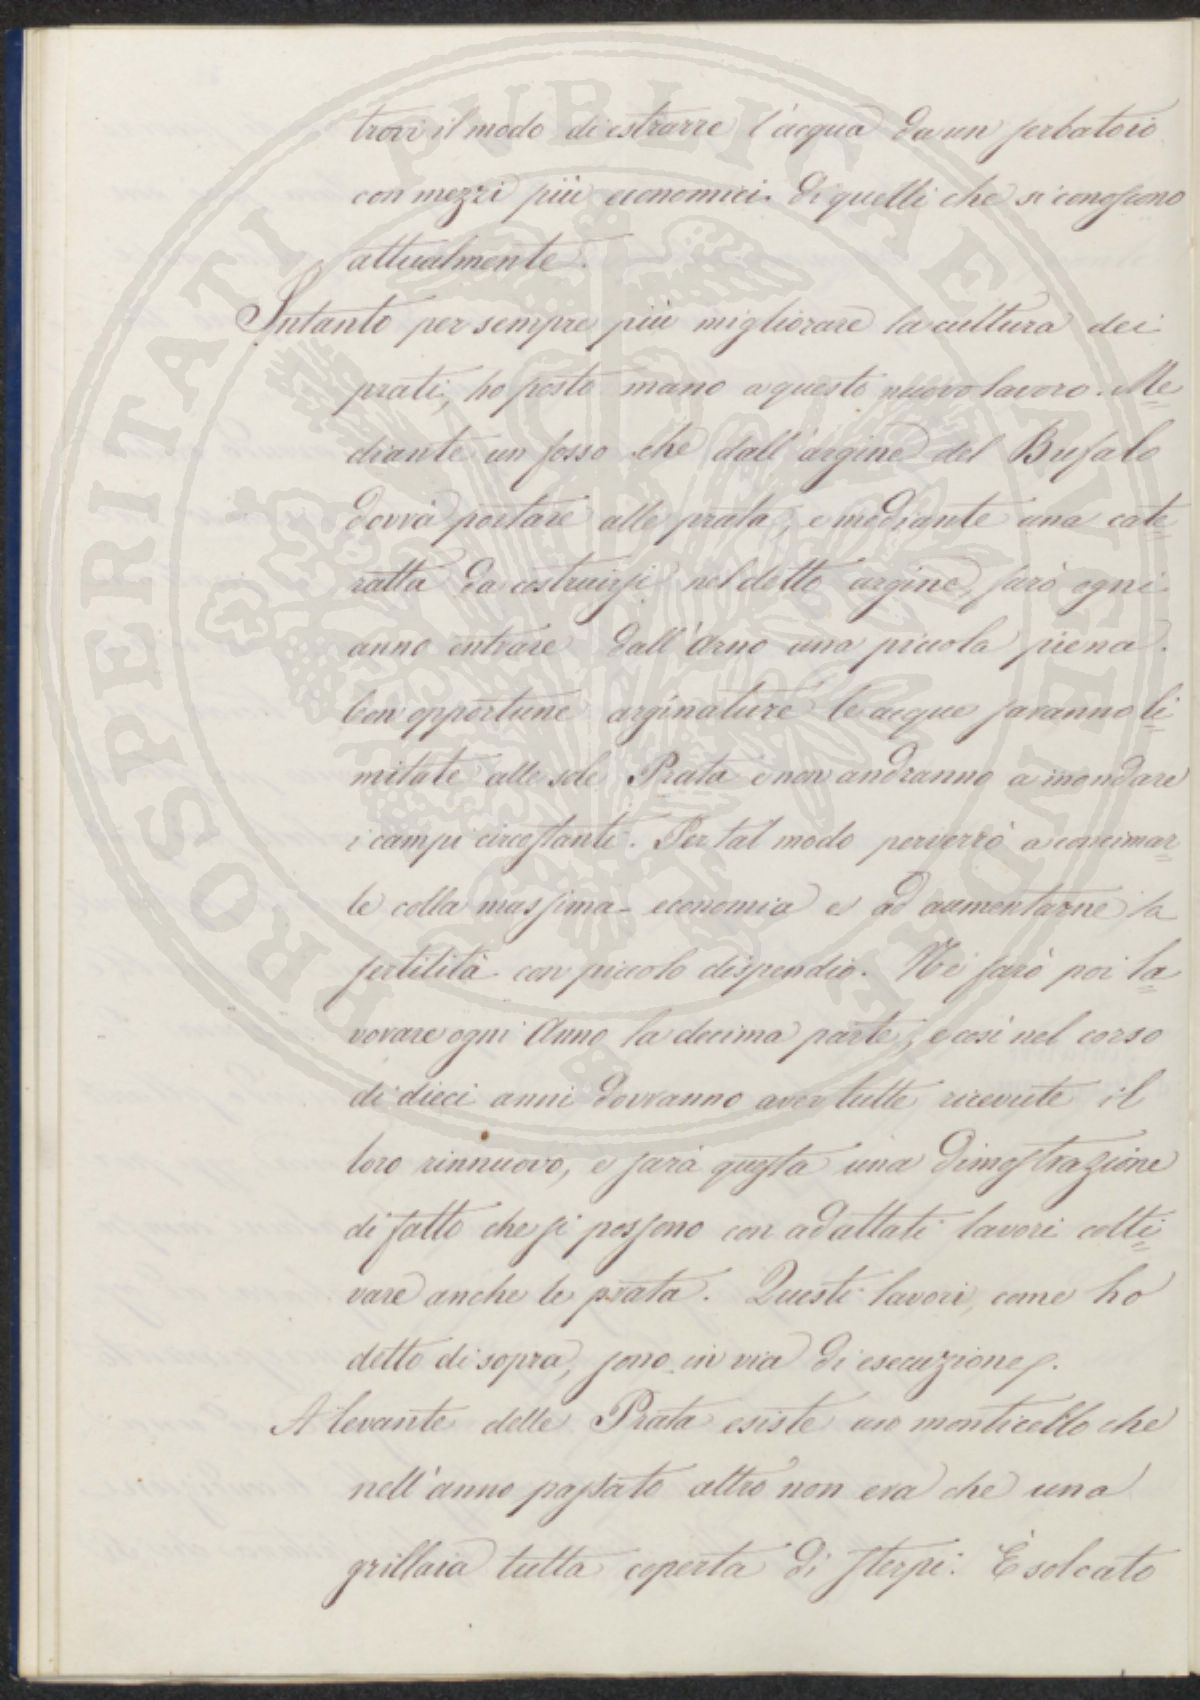 trovi il modo di estrarre l'acqua da un serbatoio
con mezzi più economici di quelli che si conoscono
attualmente.
Intanto per sempre più migliorare la cultura dei
prati, ho posto mano a questo nuovo lavoro. Me
diante un fosso che dall'argine del Bufalo
dovrà portare alle prata, e mediante una cate
ratta da costruirsi nel detto argine, farò ogni
anno entrare dall'Arno una piccola piena.
Con opportune arginature le acque saranno li
mitate alle sole Prata e non andranno a inondare
i campi circostanti. Per tal modo perverrò a concimar
le colla massima economia e ad aumentarne la
fertilità con piccolo dispendio. Vi farò poi la
vorare ogni Anno la decima parte, e così nel corso
di dieci anni dovranno aver tutte ricevute il
loro rinnuovo, e sarà questa una dimostrazione
di fatto che si possono con adattati lavori colti
vare anche le prata. Questi lavori, come ho
detto di sopra, sono in via di esecuzione.
A levante delle Prata esiste un monticello che
nell'anno passato altro non era che una
grillaia tutta coperta di sterpi. È solcato
PROSPERITATI PVBLICAE AVGENDAE